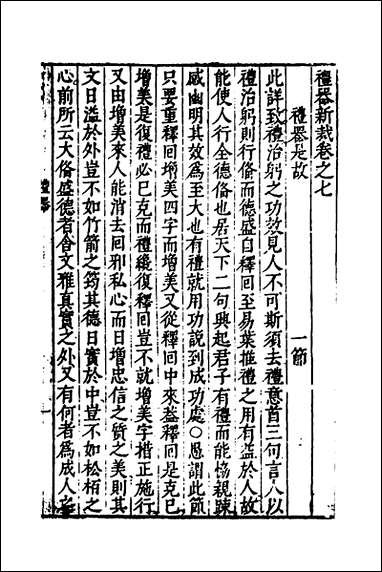 禮器新裁卷之七
禮器是故 一節
此詳致禮治躬之功效見人不可斯須去禮意首三句言人以
禮治躬則行俻而德盛自釋回至易葉推禮之用有益於人故
能使人行全德俻也居天下二句興起君子有禮而能恊親踈
感幽明其效爲至大也有禮就用功說到成功處○愚謂此節
只要重釋回增美四字而增美又從釋回中來葢釋回是克己
增美是復禮必己克而禮纔復釋回豈不就增美字措正施行
又由增美來人能消去回邪私心而日增忠信之質之美則其
文日溢於外豈不如竹箭之筠其德日實於中豈不如松栢之
心前所云大俻盛德者舍文雅真實之外又有何者爲成人之
禮器